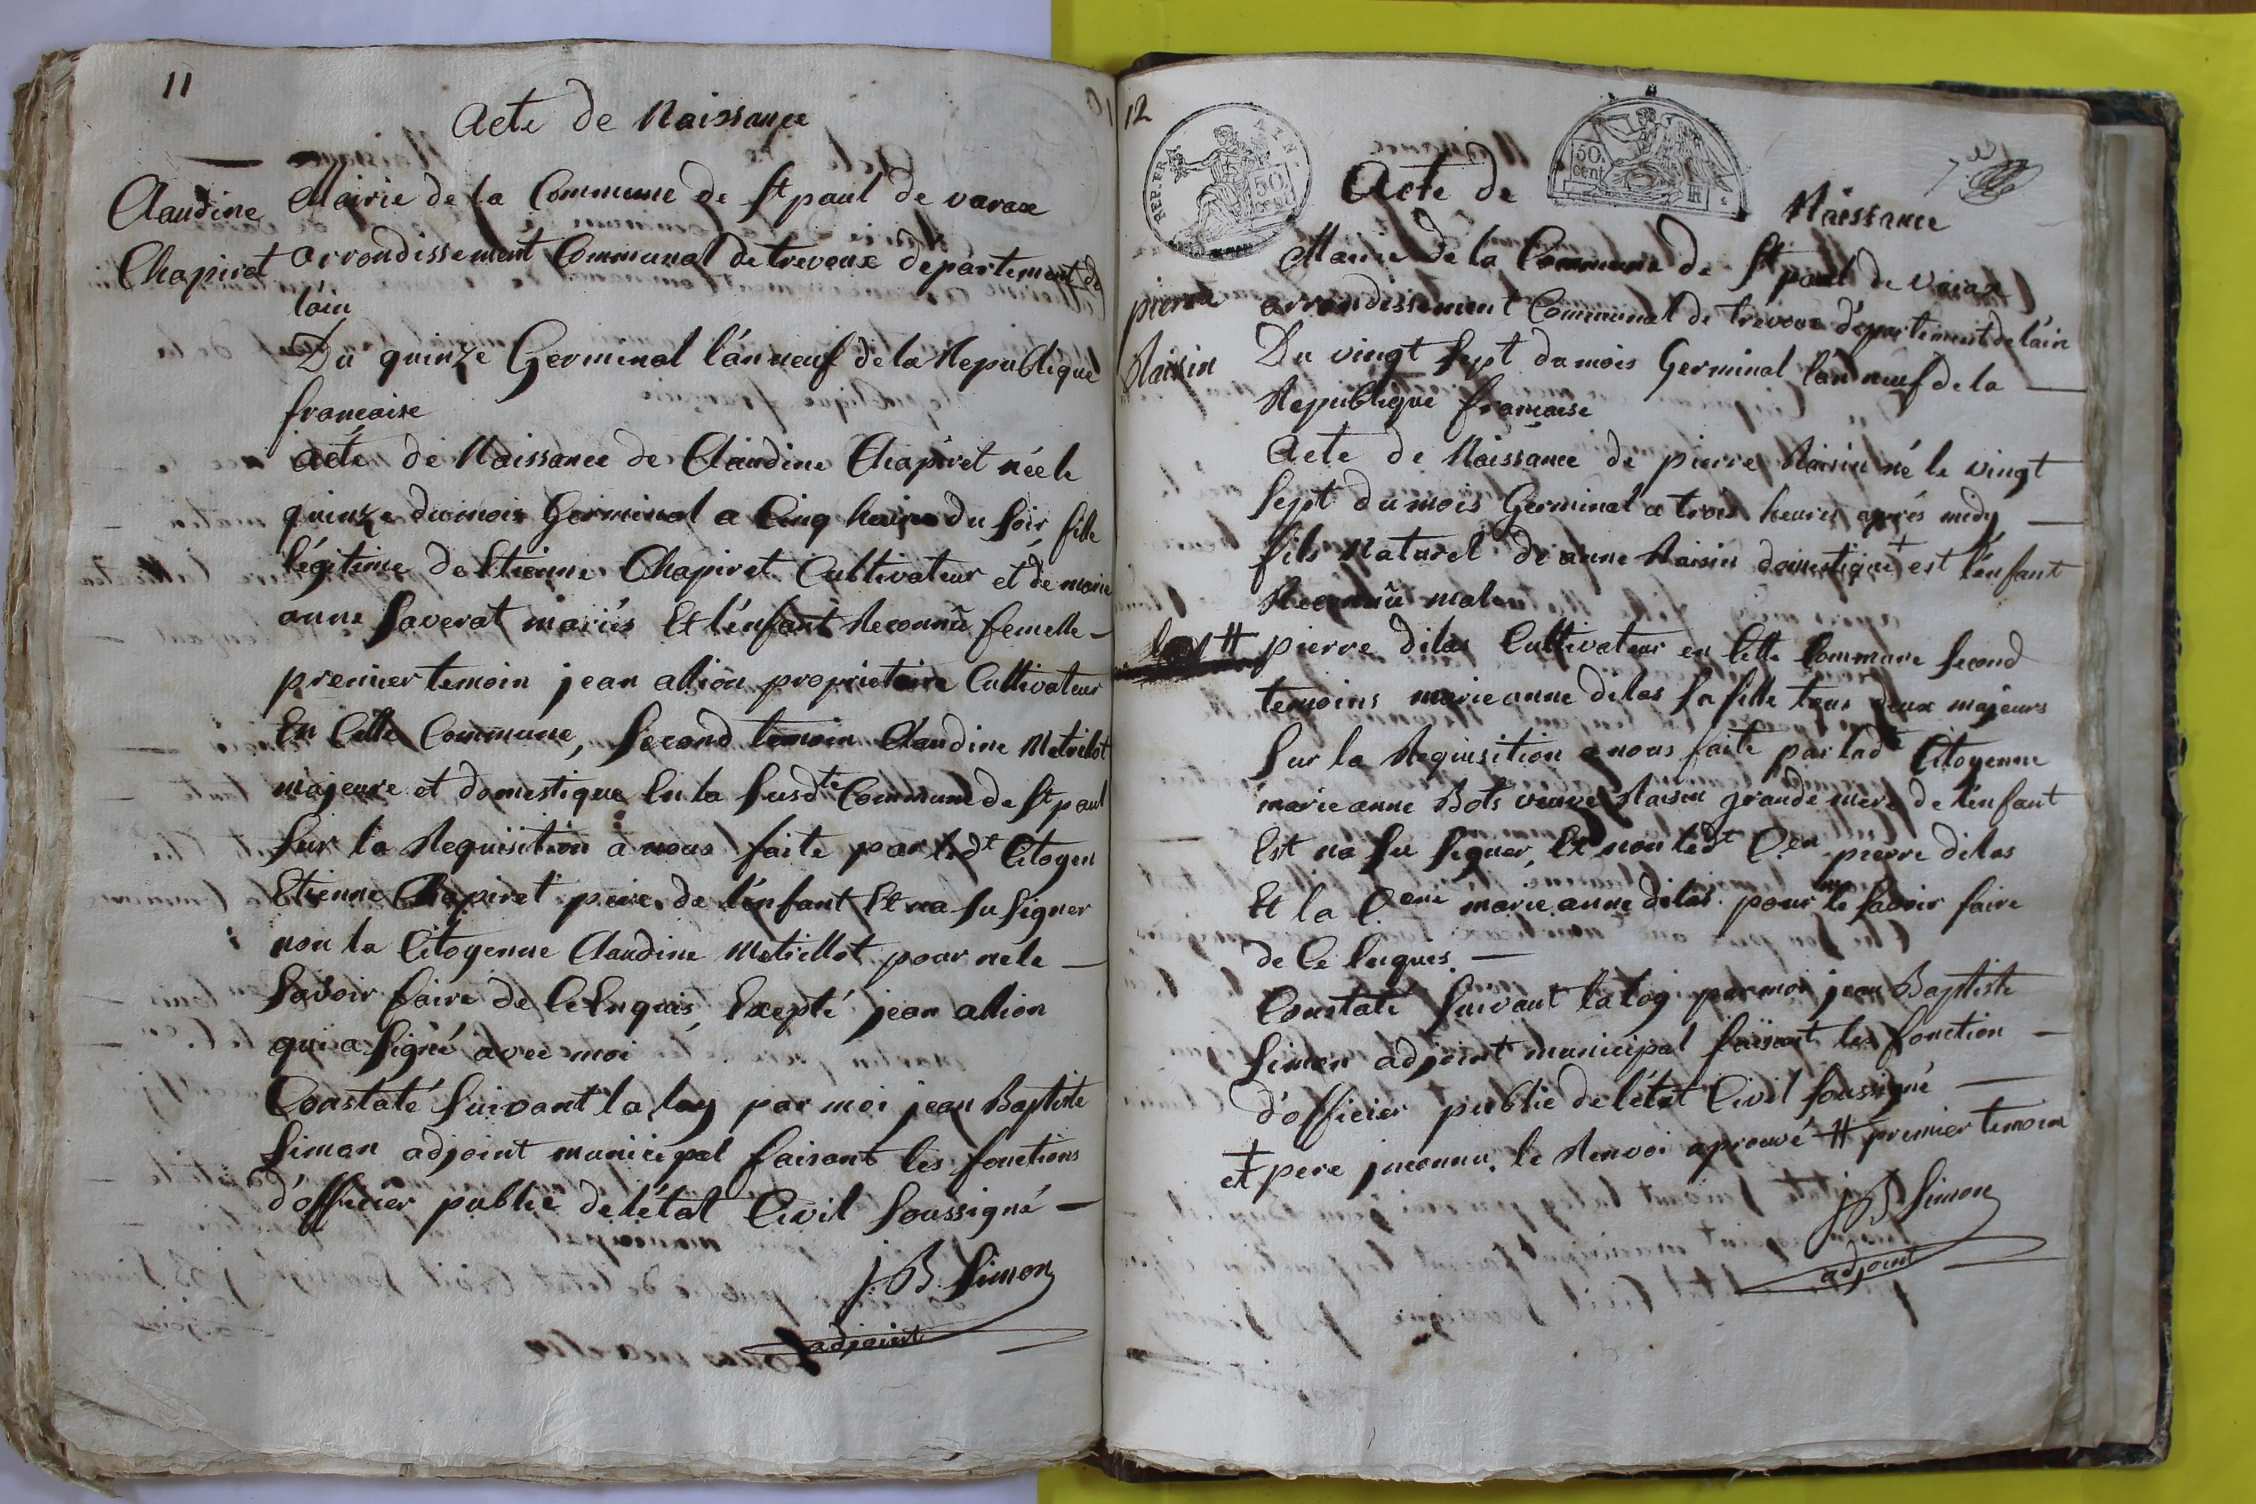 11
Acte de Naissance
Claudine
Chapiret
Mairie de la Commune de St paul de varax
arrondissement Communal de trevoux departement de
lain
Du quinze Germinal l'an neuf de la Republique
francaise
acte de Naissance de Claudine Chapiret née le
quinze du mois Germinal a Cinq heures du soir, fille
légitime de Etienne Chapiret Cultivateur et de marie
anne Saverat mariés Et l'enfant Reconnû femelle -
premier temoin jean allion proprietaire Cultivateur
En Cette Commune, Second temoin Claudine Metrillot
majeure et domestique En la susdte Commune de St paul
Sur la Requisition à nous faite par ledt Citoyen
Etienne Chapiret pere de l'enfant Et na su signer
non la Citoyenne Claudine Metrillot pour ne le -
Savoir faire de Ce Enquis, Excepté jean allion
qui a Signé avec moi
Constaté Suivant la loy par moi jean Baptiste
Simon adjoint municipal faisant les fonctions
d'officier public de l'état Civil Soussigné -
J. B. Simon
adjoint
12
REP. FR.
50
50.
cent
Acte de Naissance
pierre
Raisin
Mairie de la Commune de St paul de varax
arrondissement Communal de trevoux departement de l'ain
Du vingt Sept du mois Germinal l'an neuf de la -
Republique francaise
Acte de Naissance de pierre Raisin né le vingt
Sept du mois Germinal a trois heures aprés midy -
fils Naturel de anne Raisin domestique + est l'enfant
Reconnû male
# pierre dilas Cultivateur en Cette Commune second
temoins marie anne dilas sa fille tous deux majeurs
Sur la Requisition a nous faite par ladte Citoyenne
marie anne Bots veuve Raisin grande mere de l'enfant
Est na su signer, Et non ledt C.en pierre dilas
Et la C.ene marie anne dilas pour ne le savoir faire
de Ce Enquis. -
Constaté Suivant la loy par moi jean Baptiste
Simon adjoint municipal faisant les fonction -
d'officier public de l'état Civil soussigné -
+ et pere inconnu. le Renvoi aprouvé # premier temoin
JB Simon
adjoint